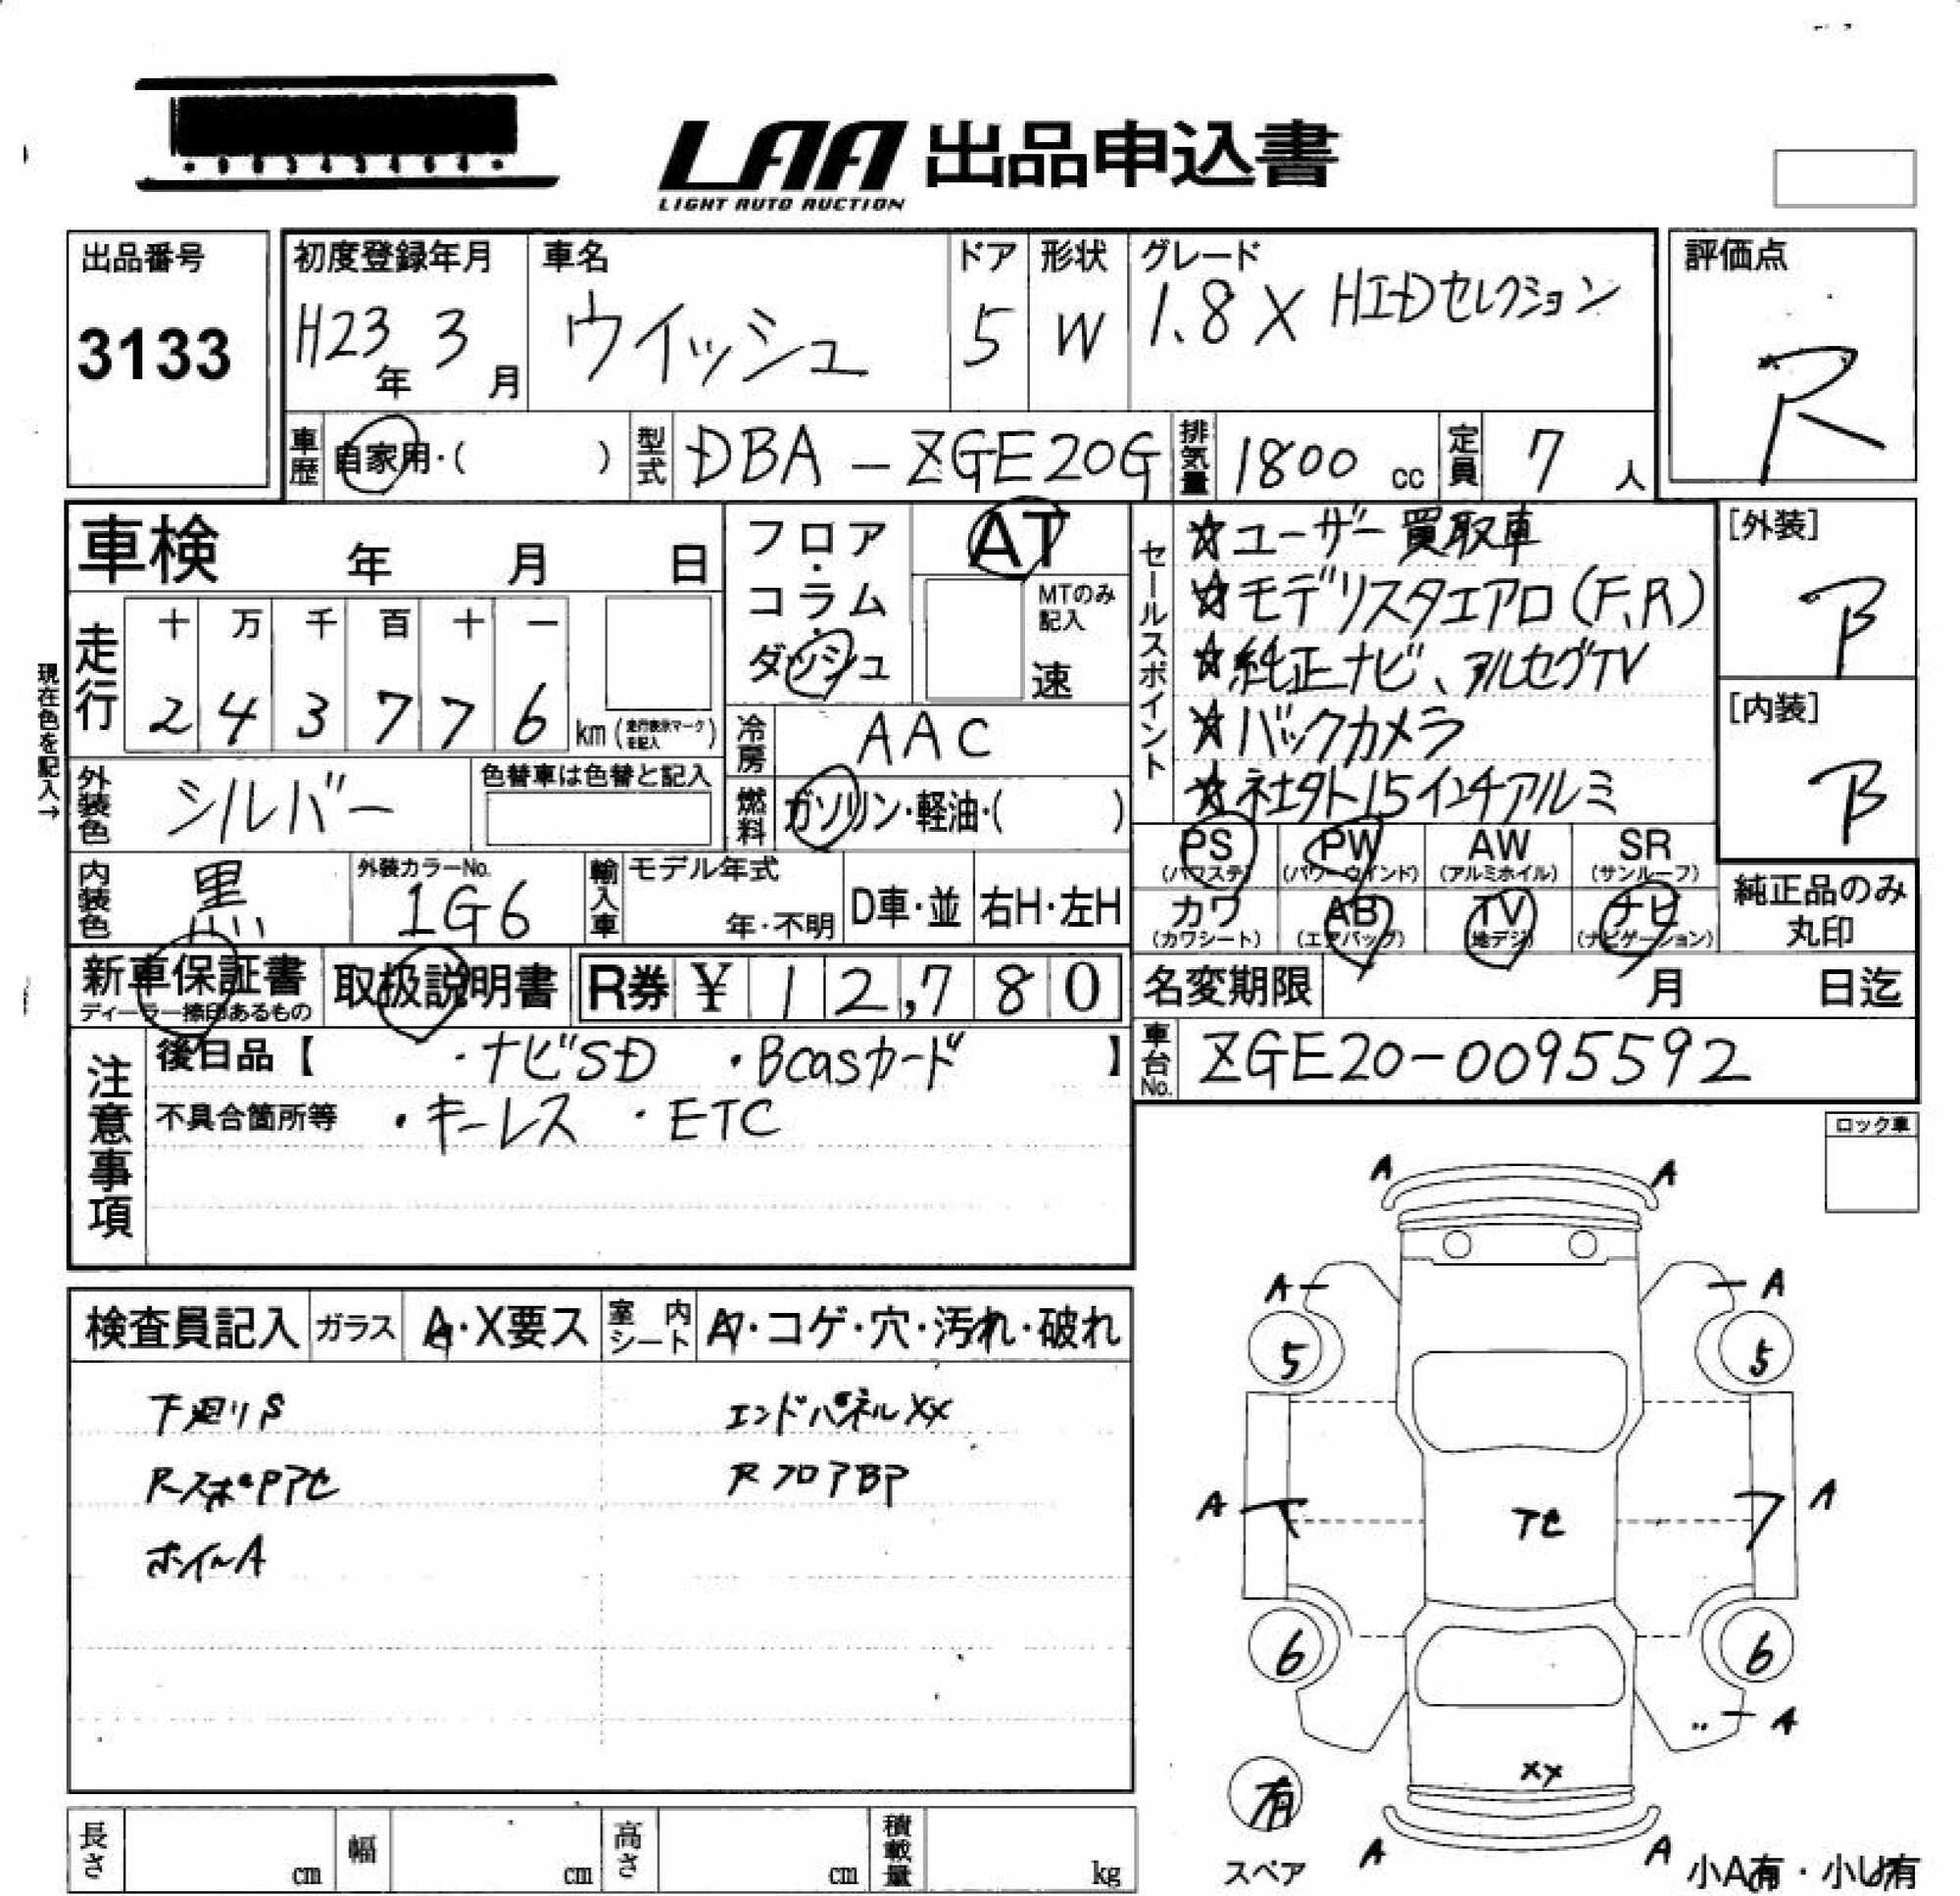 LAA 出品申込書
LIGHT AUTO AUCTION
出品番号
3133
初度登録年月
H23年 3月
車名
ウイッシュ
ドア
5
形状
W
グレード
1.8X HIDセレクション
評価点
R
車歴 自家用・( )
型式 DBA-ZGE20G
排気量 1800 cc
定員 7 人
車検 年 月 日
走行
十 万 千 百 十 一
2 4 3 7 7 6 km (走行表示マークを記入)
現在色を記入→
フロア・コラム・ダッシュ
AT
MTのみ記入
速
冷房 AAC
燃料 ガソリン・軽油・( )
外装色 シルバー
色替車は色替と記入
内装色 黒
外装カラーNo.
1G6
輸入車
モデル年式
年・不明
D車・並
右H・左H
セールスポイント
☆ユーザー買取車
☆モデリスタエアロ(F,R)
☆純正ナビ、フルセグTV
☆バックカメラ
☆社外15インチアルミ
[外装]
B
[内装]
B
PS (パワステ)
PW (パワーウインド)
AW (アルミホイル)
SR (サンルーフ)
カワ (カワシート)
AB (エアバッグ)
TV (地デジ)
ナビ (ナビゲーション)
純正品のみ
丸印
新車保証書
ディーラー捺印あるもの
取扱説明書
R券 ¥ 12,780
名変期限 月 日迄
車台No. ZGE20-0095592
注意事項
後日品【 ・ナビSD ・Bcasカード 】
不具合箇所等 ・キーレス ・ETC
ロック車
検査員記入
ガラス
A・X要ス
室内シート
A・コゲ・穴・汚れ・破れ
下廻りS
エンドパネルXX
RスポPアセ
RフロアBP
ホイールA
A A
A A
5 5
A A
アセ
6 6
A
XX
有
スペア
A A
小A有・小U有
長さ cm
幅 cm
高さ cm
積載量 kg